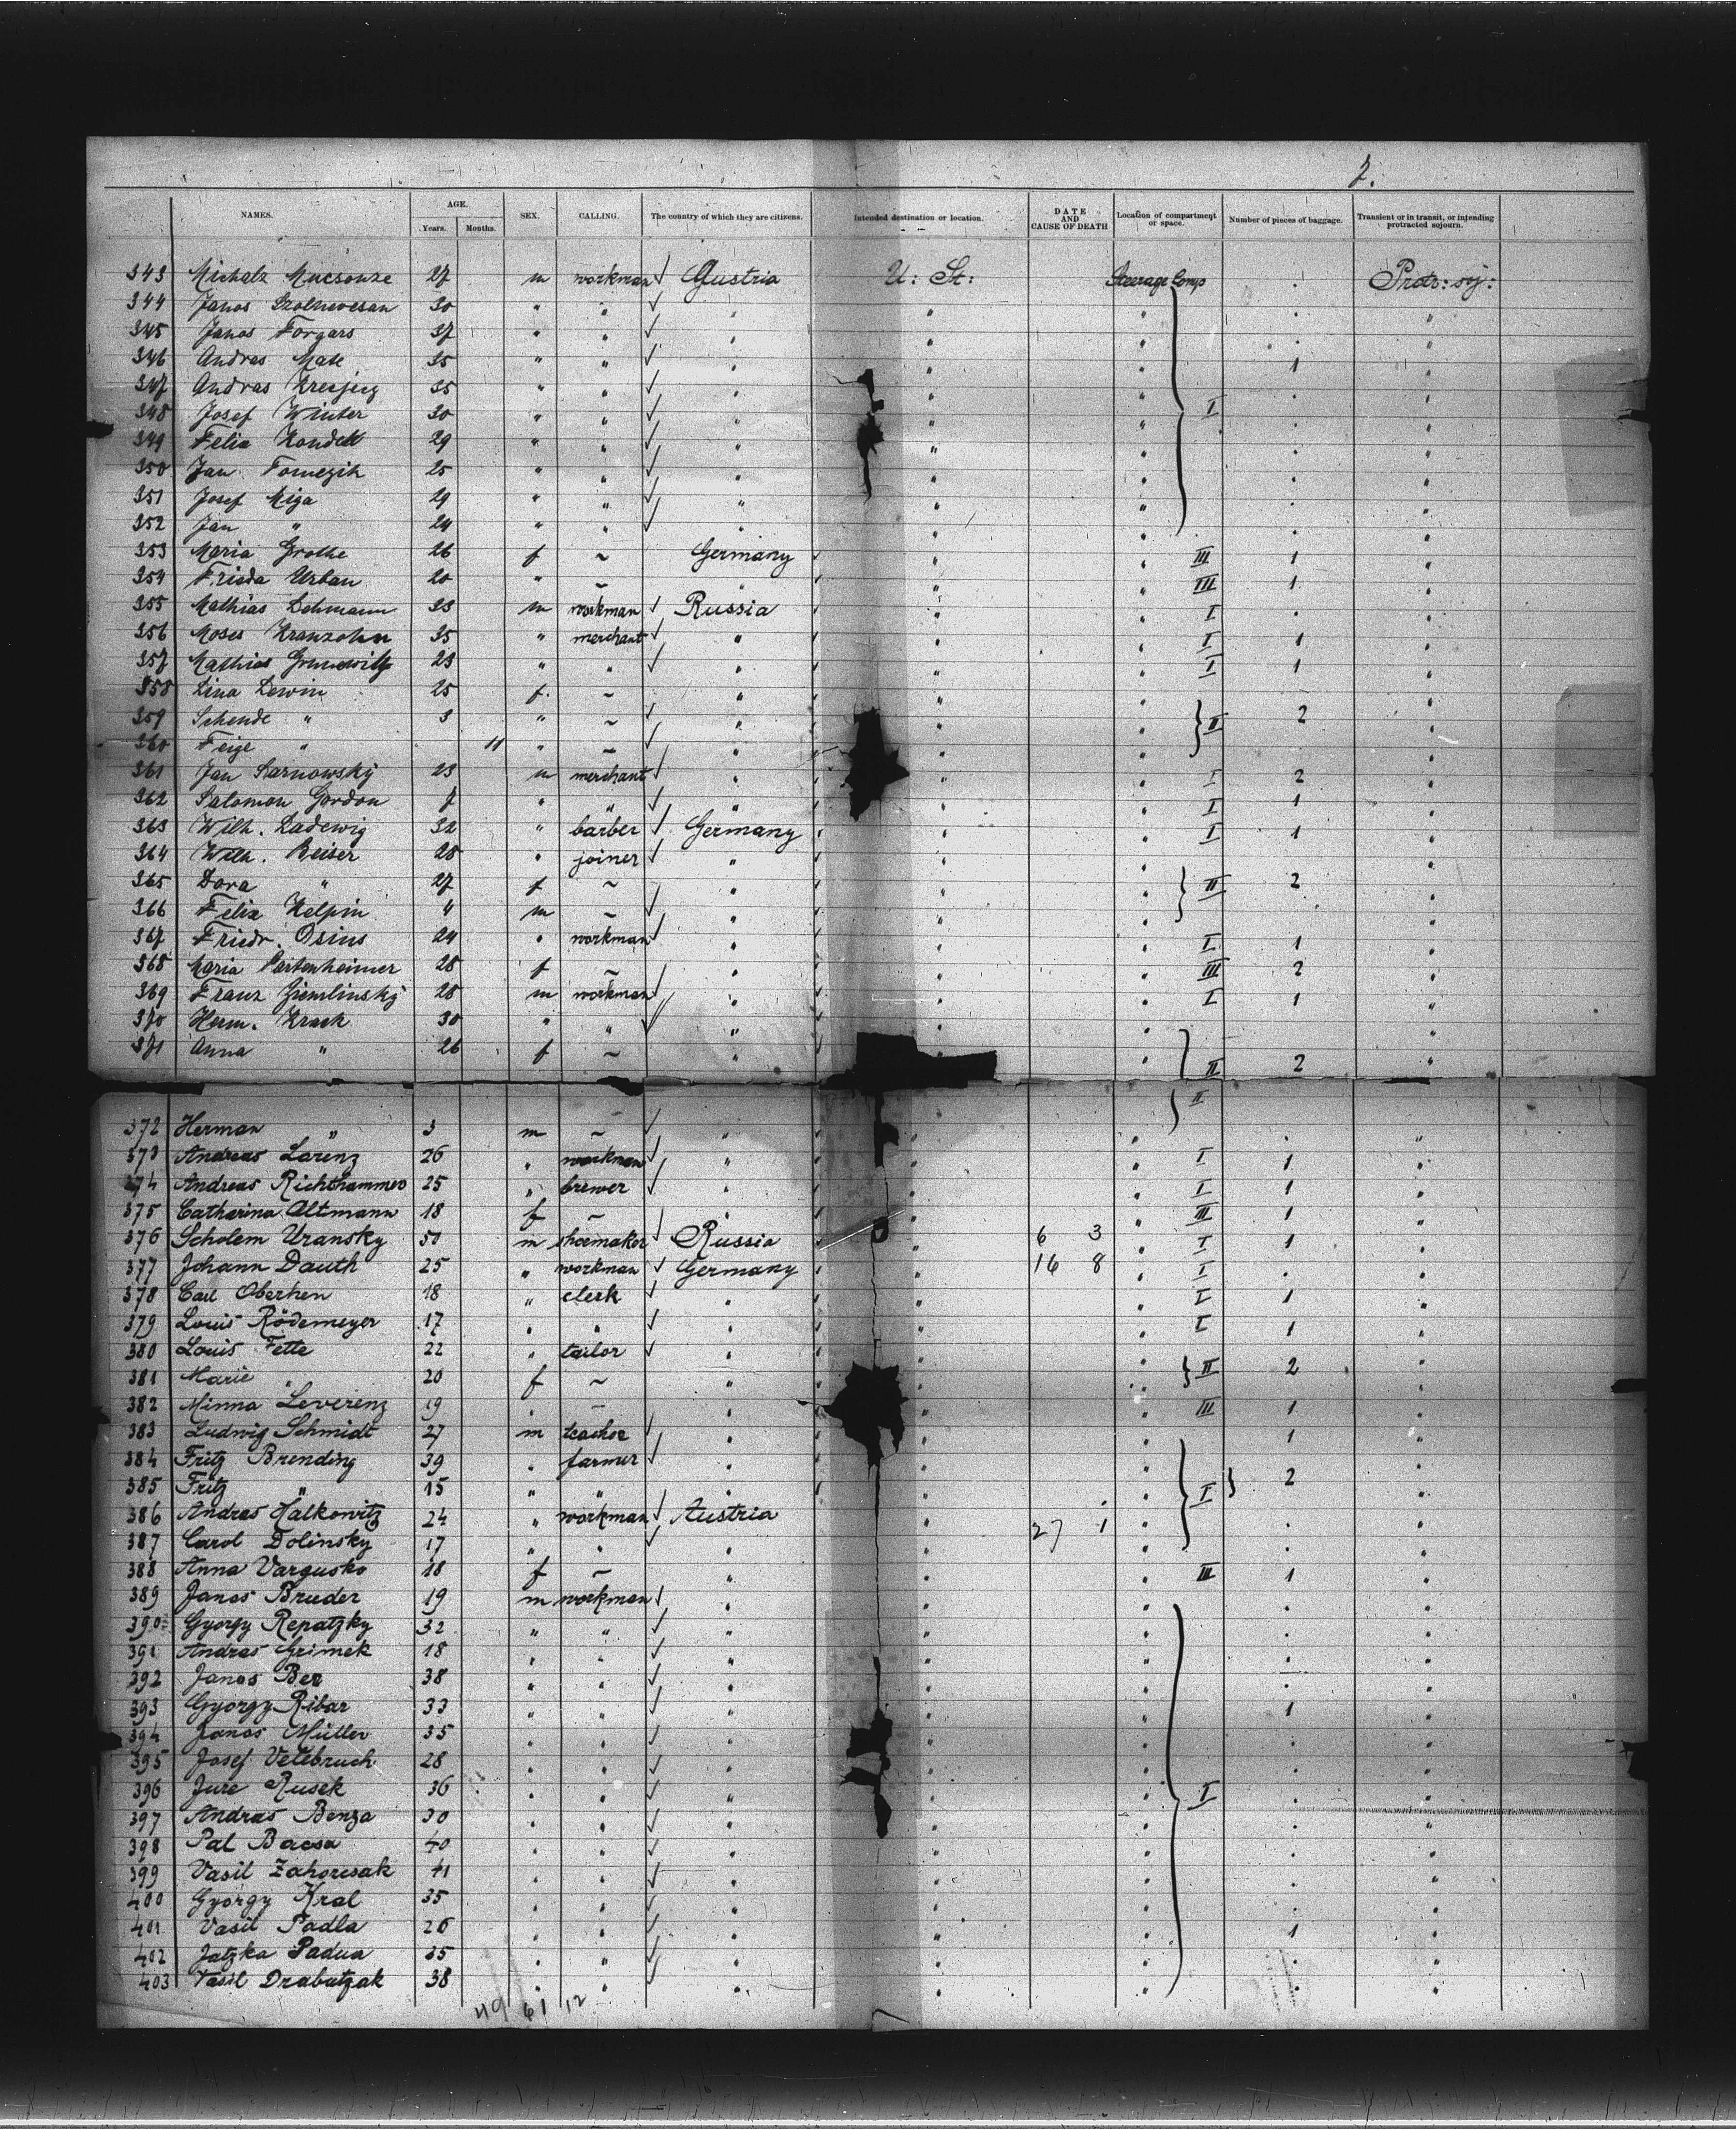 7.
NAMES. AGE. SEX. CALLING. The country of which they are citizens. Intended destination or location. DATE AND CAUSE OF DEATH Location of compartment or space. Number of pieces of baggage. Transient or in transit, or intending protracted sojourn.
Years. Months.
343 Michalz 27 m workman Austria U: St: Steerage Comp Protr: soj:
344 Janos 30 " " " " " "
345 Janos Forgars 37 " " " " " "
346 Andras Mate 35 " " " " " 1 "
347 Andras 35 " " " " " "
348 Josef Winter 30 " " " " " I "
349 Felix 29 " " " " " "
350 Jan 25 " " " " " "
351 Josef Miga 29 " " " " " "
352 Jan " 24 " " " " " "
353 Maria Grothe 26 f ~ Germany " " III 1 "
354 Frieda Urban 20 " ~ " " " III 1 "
355 Mathias Lehmann 33 m workman Russia " " I "
356 Moses Kranzohn 35 " merchant " " " I 1 "
357 Mathias 23 " " " " " I 1 "
358 Lina Lewin 25 f. ~ " " " "
359 Schende " 3 " ~ " " " II 2 "
360 Feige " 11 " ~ " " " "
361 Jan Sarnowsky 23 m merchant " " " I 2 "
362 Salomon Gordon " " " " " I 1 "
363 Wilh. Ladewig 32 " barber Germany " " I 1 "
364 Wilh. Beiser 28 " joiner " " " "
365 Dora " 27 f ~ " " " II 2 "
366 Felix Kelpin m ~ " " " "
367 Friedr. Osius 24 " workman " " " I 1 "
368 Maria Partenheimer 28 f ~ " " " III 2 "
369 Franz Ziemlinsky 28 m workman " " " I 1 "
370 Herm. Krack 30 " " " " " "
371 Anna " 26 f ~ " " " II 2 "
II
372 Herman " 3 m ~ " " " "
373 Andreas Lorenz 26 " workman " " " I 1 "
374 Andreas Richthammer 25 " brewer " " " I 1 "
375 Catharina Altmann 18 f ~ " " " III 1 "
376 Scholem Uransky 50 m shoemaker Russia " 6 3 " I 1 "
377 Johann Dauth 25 " workman Germany " 16 8 " I "
378 Carl Oberhen 18 " clerk " " " I 1 "
379 Louis Rödemeyer 17 " " " " " I 1 "
380 Louis Fette 22 " tailor " " " "
381 Marie " 20 f ~ " " " II 2 "
382 Minna Leverenz 19 " ~ " " " III 1 "
383 Ludwig Schmidt 27 m teacher " " " 1 "
384 Fritz Brending 39 " farmer " " " "
385 Fritz " 15 " " " " " I 2 "
386 Andras Halkowitz 24 " workman Austria " " "
387 Carol Dolinsky 17 " " " " 27 1 " "
388 Anna Vargusko 18 f ~ " " " III 1 "
389 Janos Bruder 19 m workman " " " "
390 Gyorgy Repatzky 32 " " " " " "
391 Andras Grimek 18 " " " " " "
392 Janos Ber 38 " " " " " "
393 Gyorgy Ribar 33 " " " " " 1 "
394 Janos Müller 35 " " " " " "
395 Josef Velebruch 28 " " " " " "
396 Jure Rusek 36 " " " " " I "
397 Andras Benza 30 " " " " " "
398 Pal Bacsa 40 " " " " " "
399 Vasil Zahoresak 41 " " " " " "
400 Gyorgy Kral 35 " " " " " "
401 Vasil Padla 26 " " " " " 1 "
402 Jatzka Padua 35 " " " " " "
403 Vasil Drabatzak 38 " " " " " "
49 61 12